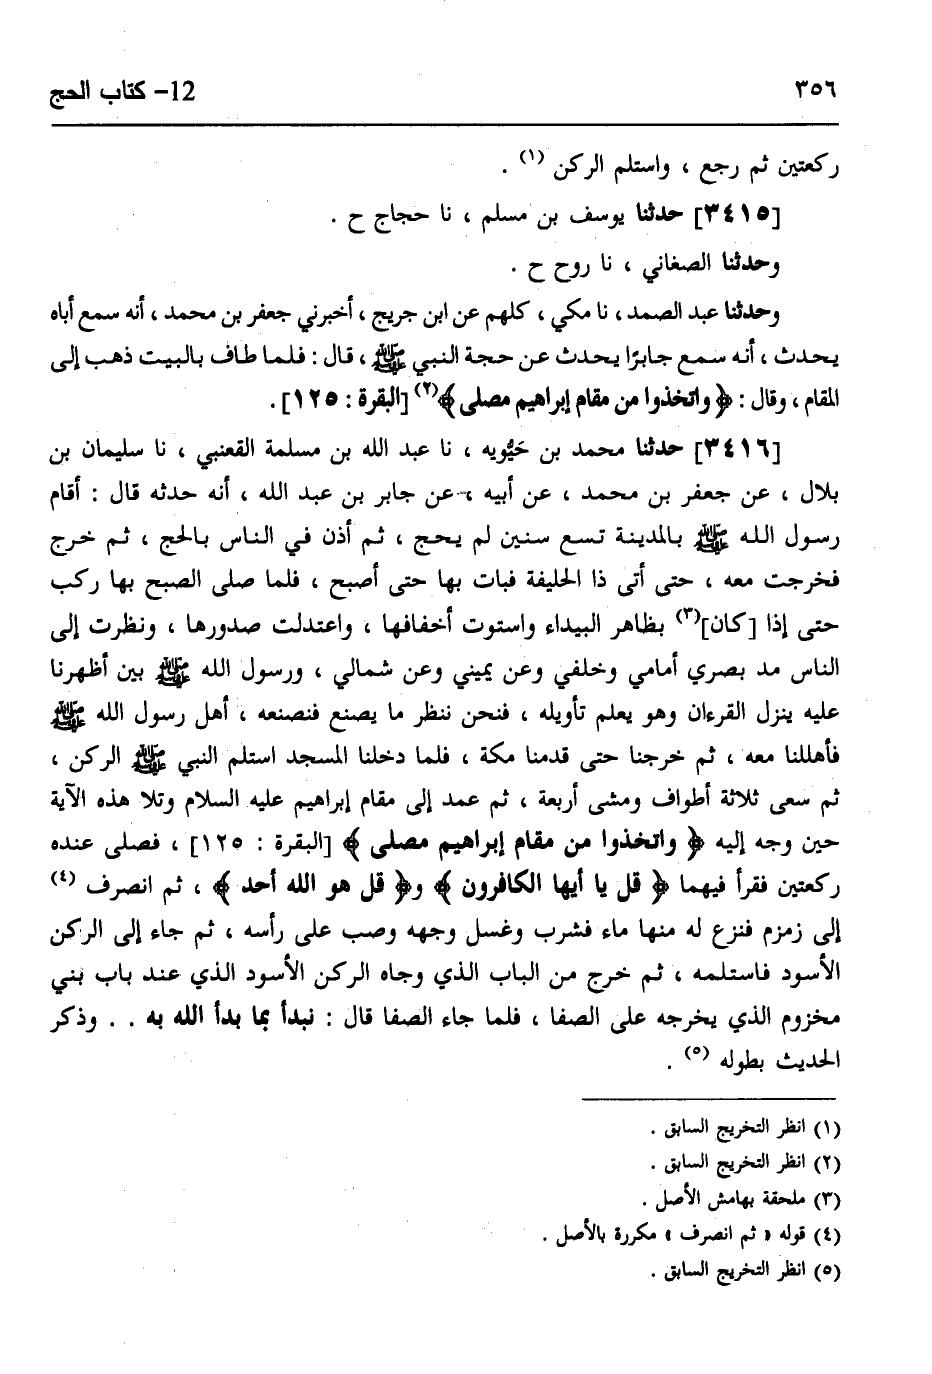 ٣٥٦
12- كتاب الحج
ركعتين ثم رجع ، واستلم الركن (١) .
[٣٤١٥] حدثنا يوسف بن مسلم ، نا حجاج ح .
وحدثنا الصغاني ، نا روح ح .
وحدثنا عبد الصمد ، نا مكي ، كلهم عن ابن جريج ، أخبرني جعفر بن محمد ، أنه سمع أباه
يحدث ، أنه سمع جابرًا يحدث عن حجة النبي ﷺ ، قال : فلما طاف بالبيت ذهب إلى
المقام ، وقال : ﴿ واتخذوا من مقام إبراهيم مصلى ﴾(٢) [البقرة : ١٢٥] .
[٣٤١٦] حدثنا محمد بن حَيُّويه ، نا عبد الله بن مسلمة القعنبي ، نا سليمان بن
بلال ، عن جعفر بن محمد ، عن أبيه ، عن جابر بن عبد الله ، أنه حدثه قال : أقام
رسول الله ﷺ بالمدينة تسع سنين لم يحج ، ثم أذن في الناس بالحج ، ثم خرج
فخرجت معه ، حتى أتى ذا الحليفة فبات بها حتى أصبح ، فلما صلى الصبح بها ركب
حتى إذا [كان](٣) بظاهر البيداء واستوت أخفافها ، واعتدلت صدورها ، ونظرت إلى
الناس مد بصري أمامي وخلفي وعن يميني وعن شمالي ، ورسول الله ﷺ بين أظهرنا
عليه ينزل القرءان وهو يعلم تأويله ، فنحن ننظر ما يصنع فنصنعه ، أهل رسول الله ﷺ
فأهللنا معه ، ثم خرجنا حتى قدمنا مكة ، فلما دخلنا المسجد استلم النبي ﷺ الركن ،
ثم سعى ثلاثة أطواف ومشى أربعة ، ثم عمد إلى مقام إبراهيم عليه السلام وتلا هذه الآية
حين وجه إليه ﴿ واتخذوا من مقام إبراهيم مصلى ﴾ [البقرة : ١٢٥] ، فصلى عنده
ركعتين فقرأ فيهما ﴿ قل يا أيها الكافرون ﴾ و﴿ قل هو الله أحد ﴾ ، ثم انصرف (٤)
إلى زمزم فنزع له منها ماء فشرب وغسل وجهه وصب على رأسه ، ثم جاء إلى الركن
الأسود فاستلمه ، ثم خرج من الباب الذي وجاه الركن الأسود الذي عند باب بني
مخزوم الذي يخرجه على الصفا ، فلما جاء الصفا قال : نبدأ بما بدأ الله به . . وذكر
الحديث بطوله (٥) .
(١) انظر التخريج السابق .
(٢) انظر التخريج السابق .
(٣) ملحقة بهامش الأصل .
(٤) قوله « ثم انصرف » مكررة بالأصل .
(٥) انظر التخريج السابق .